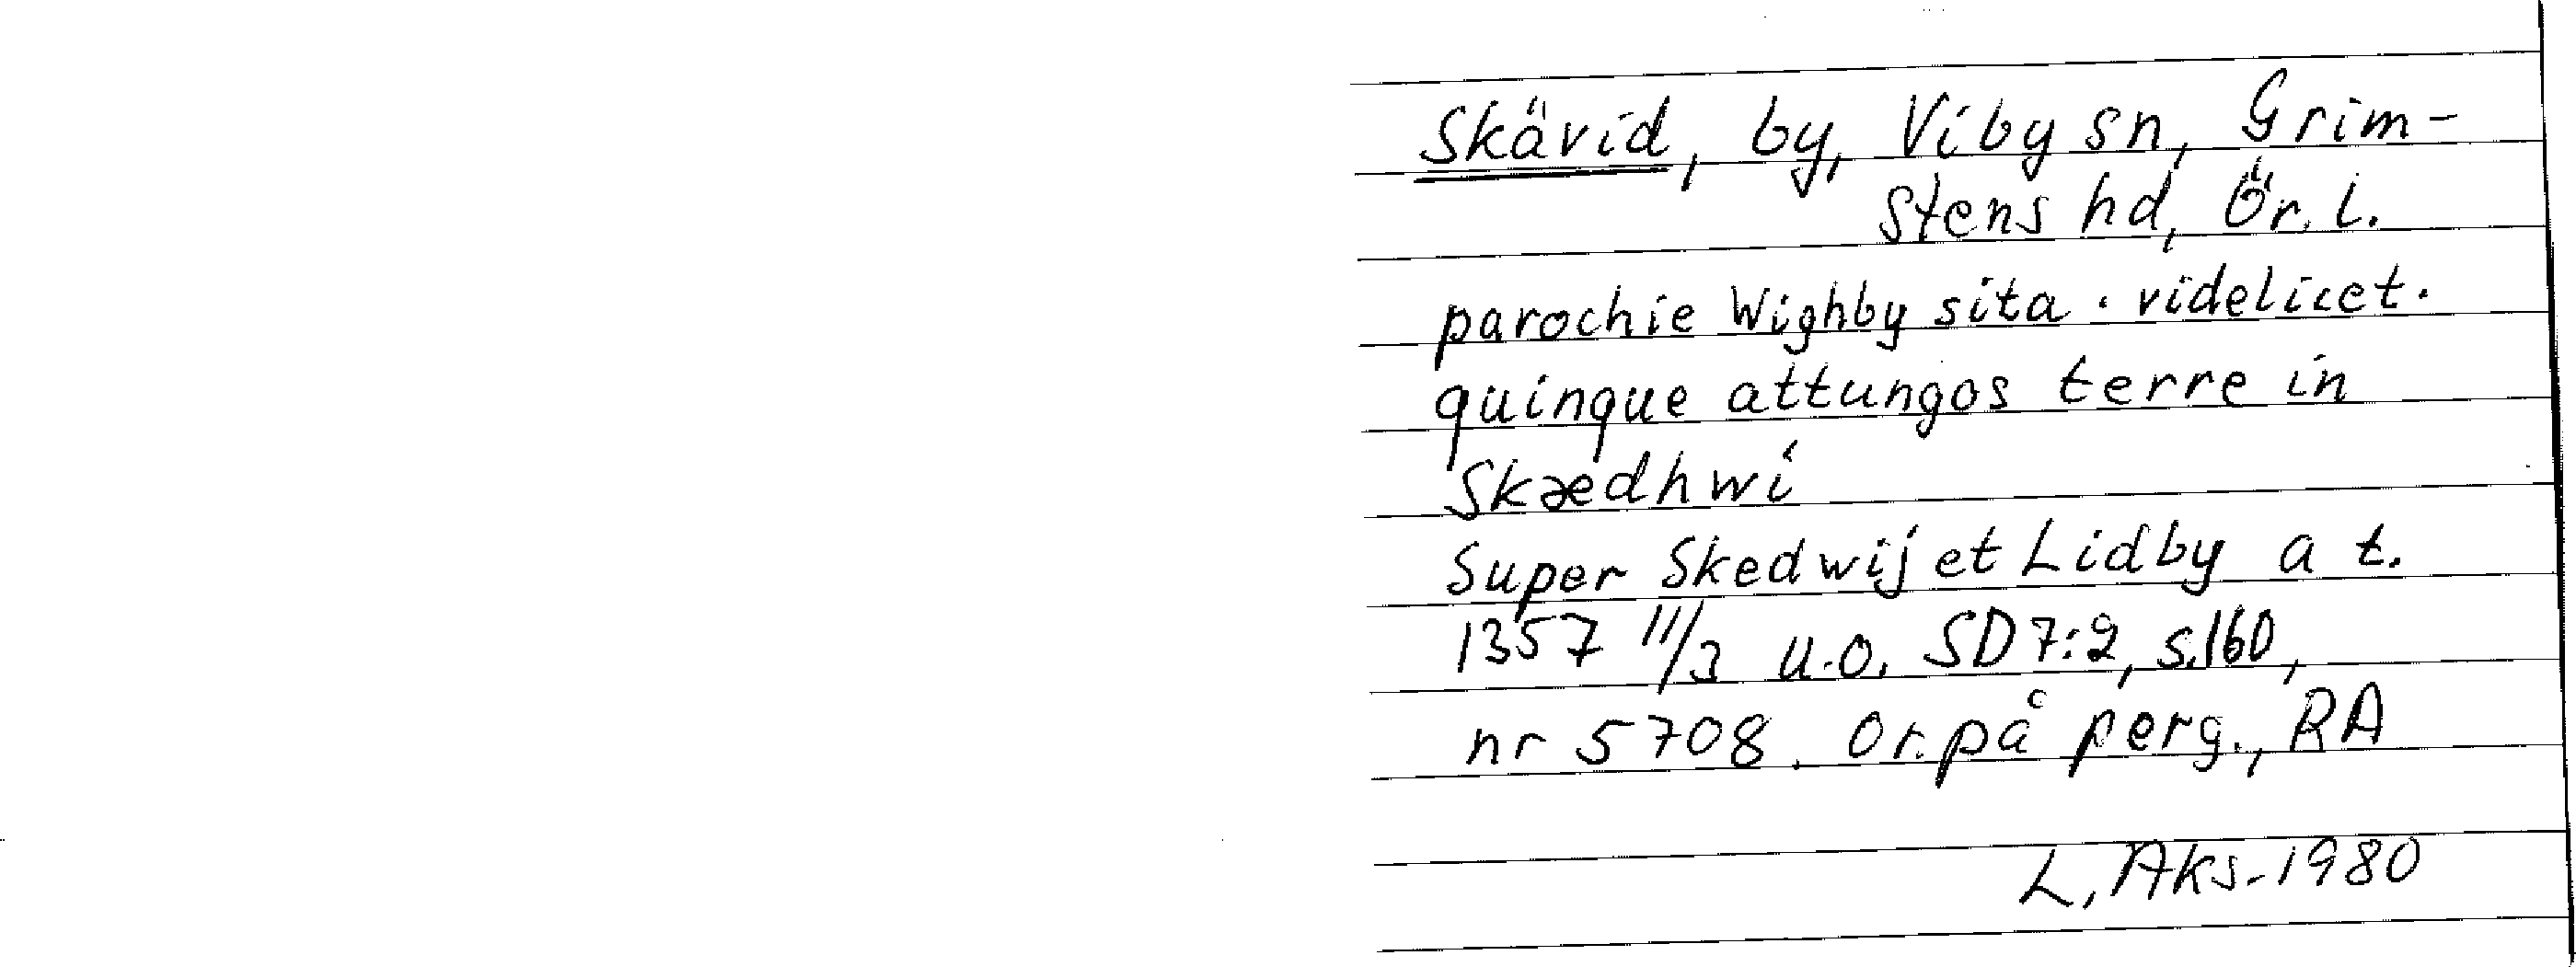 Skävid, by, Viby sn, Grim-
stens hd, Ör. l.
parochie Wighby sita · videlicet ·
quinque attungos terre in
Skædhwi
Super Skedwij et Lidby a t.
1357 11/3 u.o. SD 7:2, s.160,
nr 5708. Or. på perg., RA
L, Aks. 1980